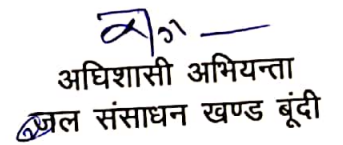 अधिशासी अभियन्ता
जल संसाधन खण्ड बूंदी